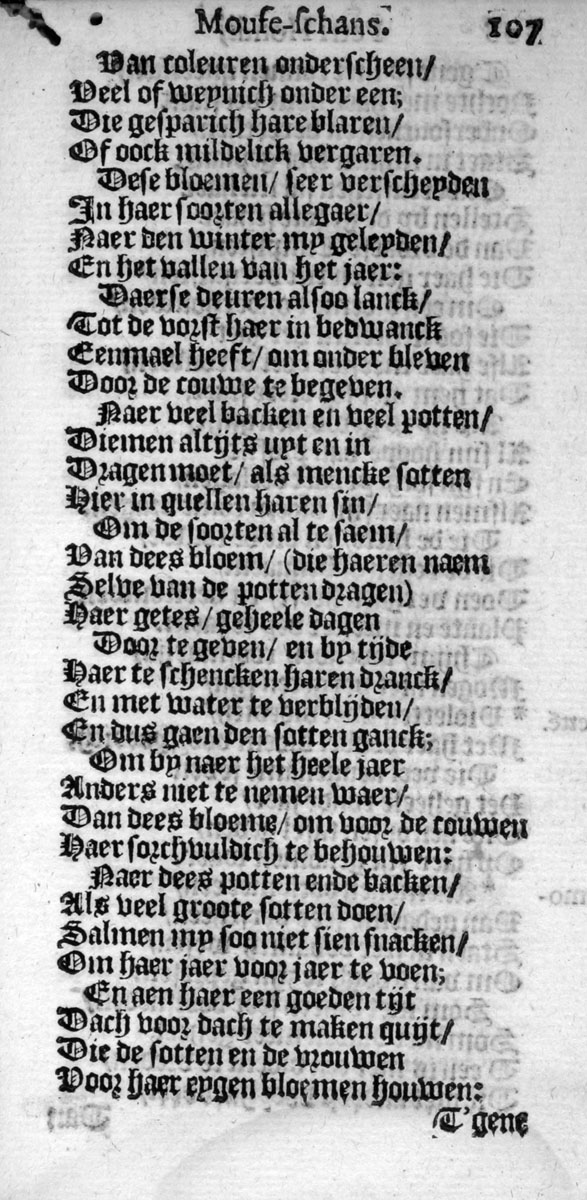 Mouse-schans. 107
Van coleuren onderscheen/
Veel of weynich onder een;
Die gesparich hare blaren/
Of oock mildelick vergaren.
Dese bloemen/ seer verscheyden
In haer soorten allegaer/
Naer den winter my geleyden/
En het vallen van het jaer:
Daerse deuren alsoo lanck/
Tot de vorst haer in bedwanck
Eenmael heeft/ om onder bleven
Door de couwe te begeven.
Naer veel backen en veel potten/
Diemen altijts uyt en in
Dragen moet/ als mencke sotten
Hier in quellen haren sin/
Om de soorten al te saem/
Van dees bloem/ (die haeren naem
Selve van de potten dragen)
Haer getes/ geheele dagen
Door te geven/ en by tijde
Haer te schencken haren dranck/
En met water te verblijden/
En dus gaen den sotten ganck;
Om by naer het heele jaer
Anders niet te nemen waer/
Dan dees bloeme/ om voor de couwen
Haer sorchvuldich te behouwen:
Naer dees potten ende backen/
Als veel groote sotten doen/
Salmen my soo niet sien snacken/
Om haer jaer voor jaer te voen;
En aen haer een goeden tijt
Dach voor dach te maken quijt/
Die de sotten en de vrouwen
Voor haer eygen bloemen houwen:
T'gene